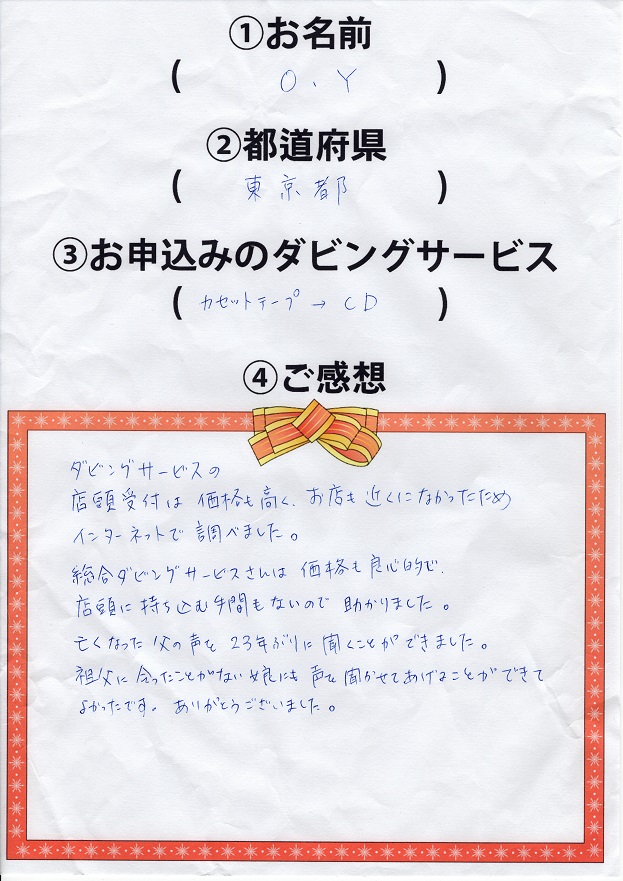 ①お名前
( O.Y )
②都道府県
( 東京都 )
③お申込みのダビングサービス
( カセットテープ → CD )
④ご感想
ダビングサービスの
店頭受付は価格も高く、お店も近くになかったため
インターネットで調べました。
総合ダビングサービスさんは価格も良心的で、
店頭に持ち込む手間もないので助かりました。
亡くなった父の声を23年ぶりに聞くことができました。
祖父に会ったことがない娘にも声を聞かせてあげることができて
よかったです。ありがとうございました。